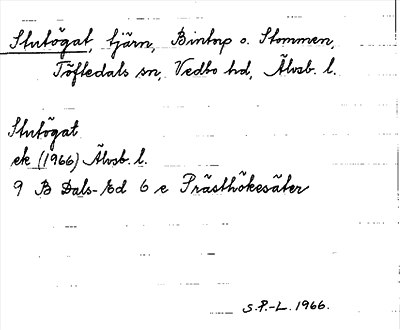 Stutögat, tjärn, Bintorp o. Stommen,
Töftedals sn, Vedbo hd, Älvsb. l.
Stutögat
ek (1966) Älvsb. l.
9 B Dals-Ed 6 e Prästhökesäter
S.P.-L. 1966.